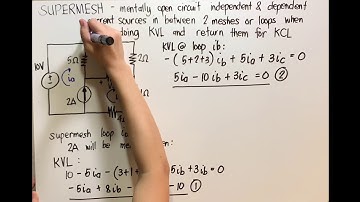 SUPERMESH - mentally open circuit independent & dependent
current sources in between 2 meshes or loops when
doing KVL and return them for KCL
KVL @ loop ib:
-(5+2+3)ib + 5ia + 3ic = 0
5ia - 10ib + 3ic = 0 ②
10V
5Ω
ia
ib
2Ω
2A
Supermesh loop
2A will be
KVL:
10 - 5ia - (3+1 5ib + 3ib = 0
-5ia + 8ib - -10 ①